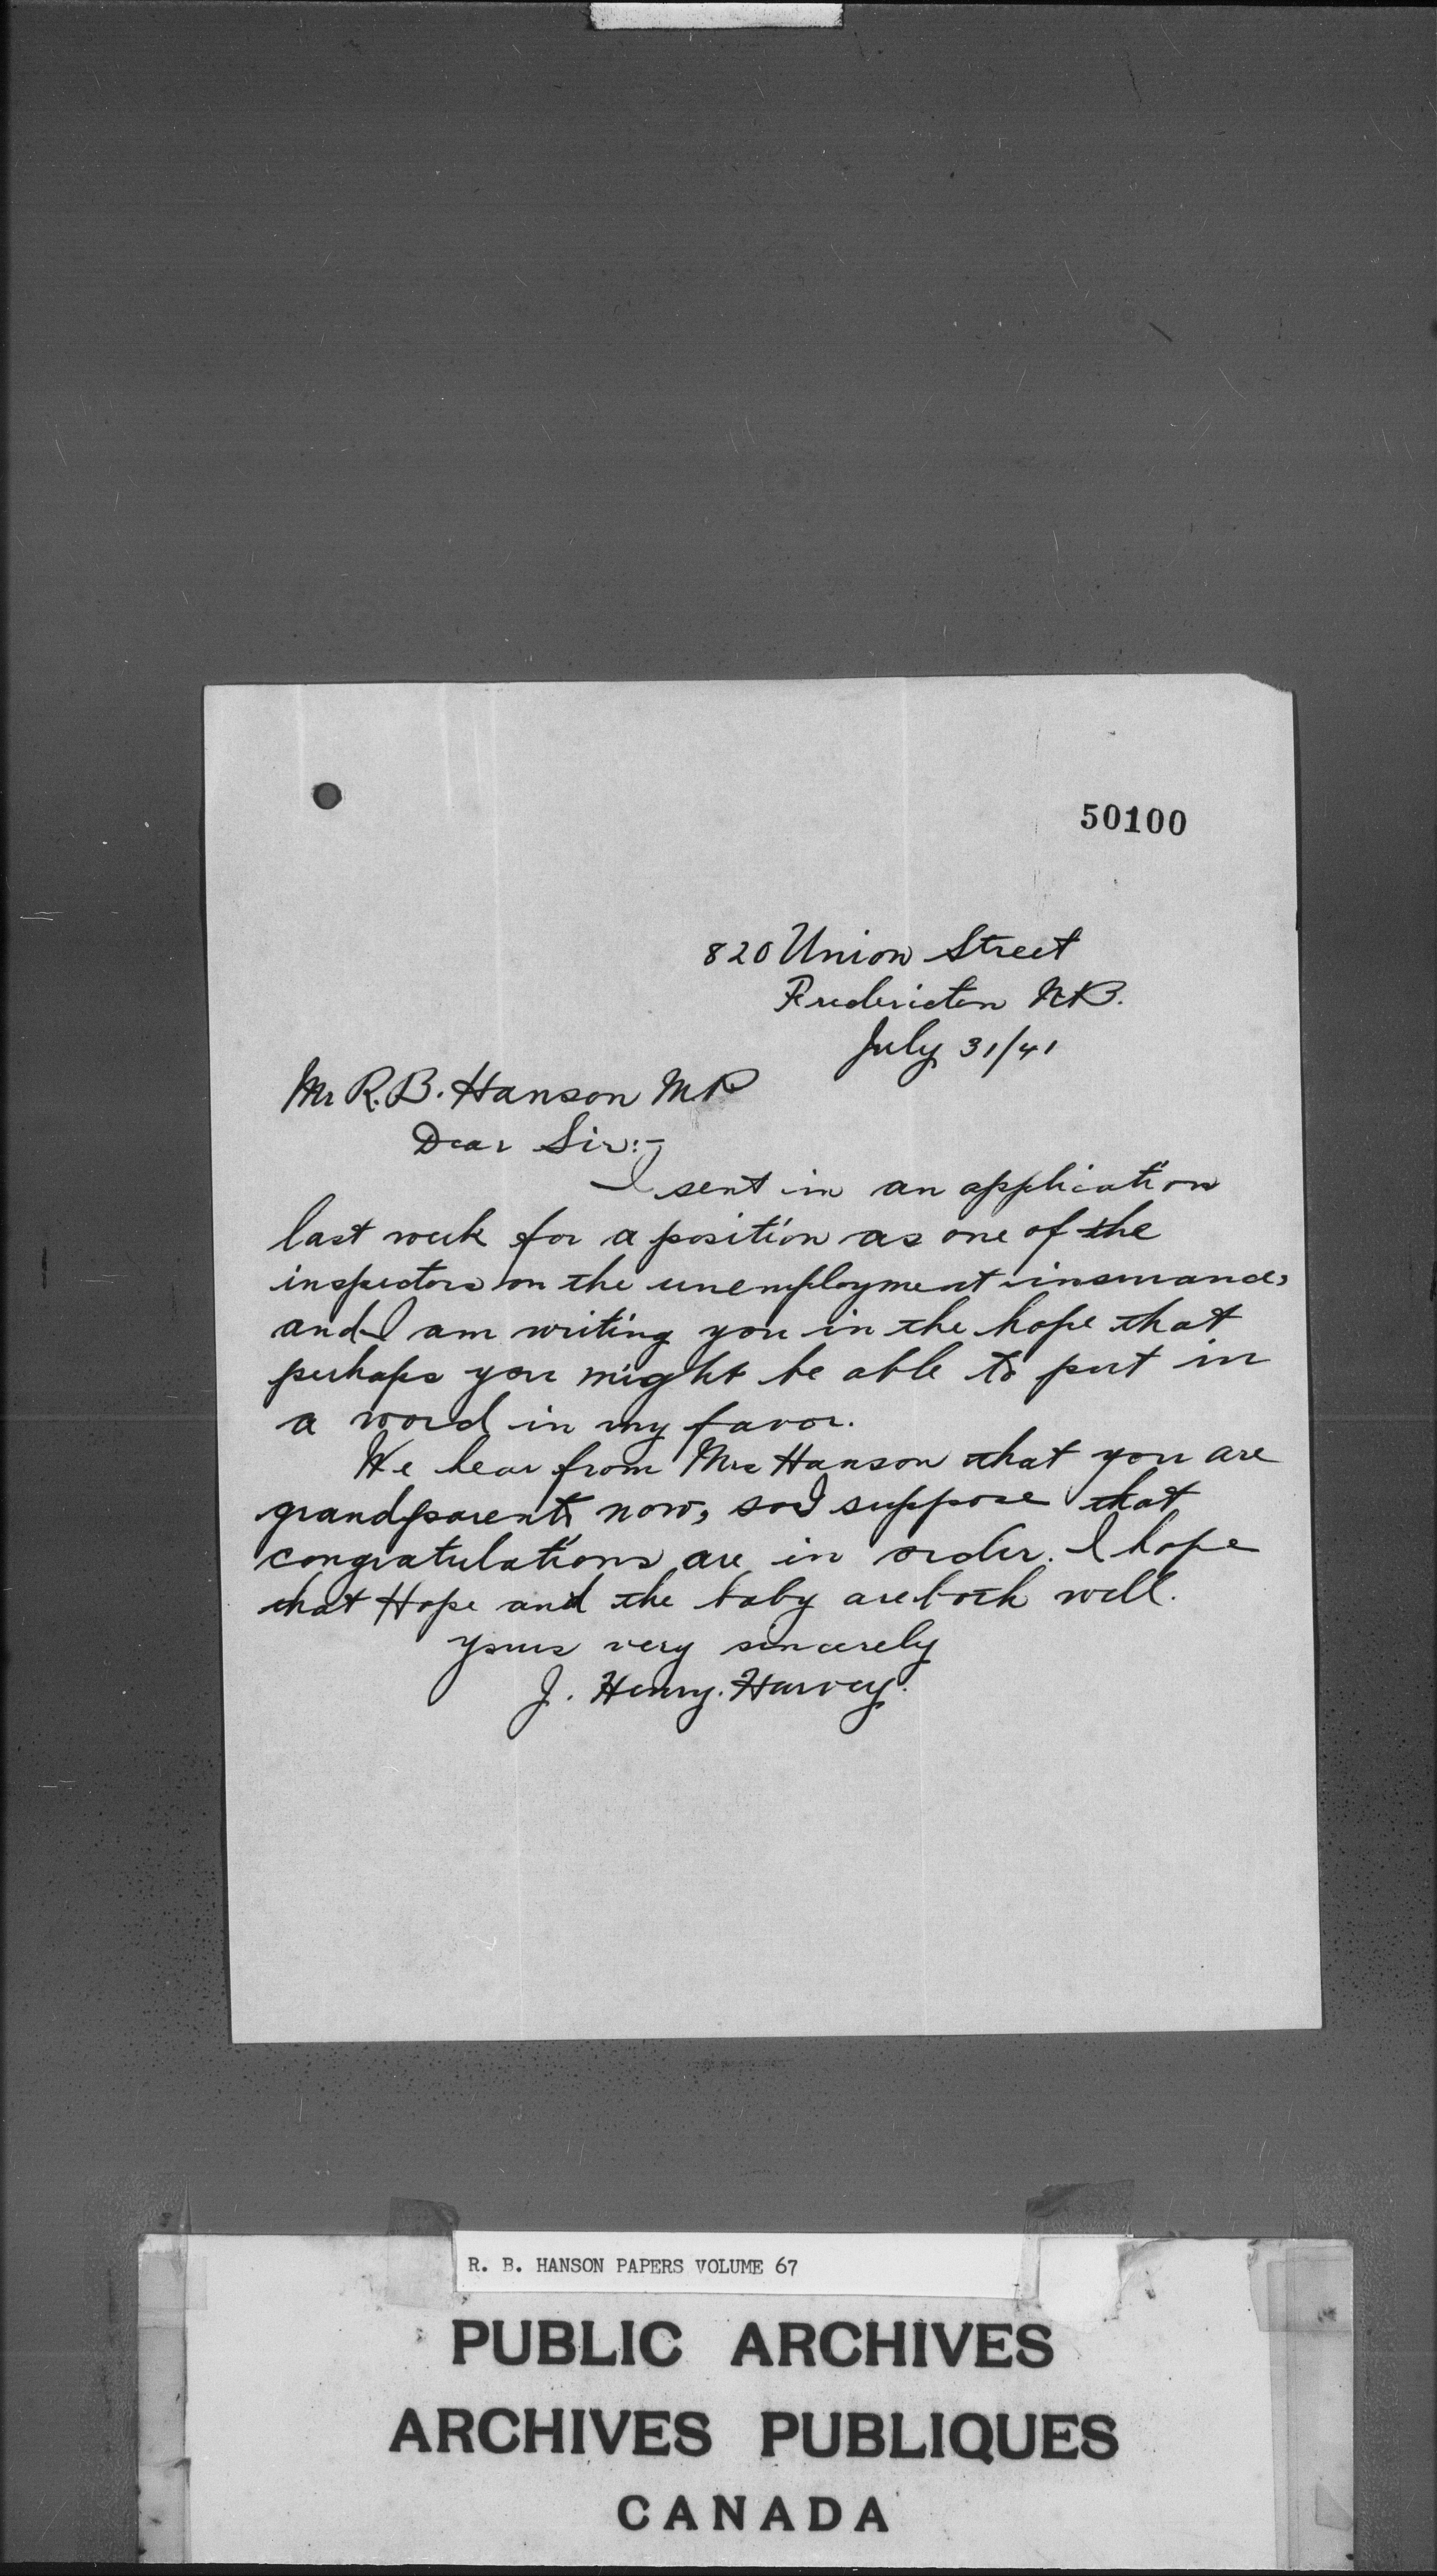 50100
820 Union Street
Fredericton N.B.
July 31/41
Mr R. B. Hanson M P
Dear Sir:-
I sent in an application
last week for a position as one of the
inspectors on the unemployment insurance,
and I am writing you in the hope that
perhaps you might be able to put in
a word in my favor.
We hear from Mrs Hanson that you are
grandparents now, so I suppose that
congratulations are in order. I hope
that Hope and the baby are both well.
Yours very sincerely
J. Henry. Harvey.
R. B. HANSON PAPERS VOLUME 67
PUBLIC ARCHIVES
ARCHIVES PUBLIQUES
CANADA